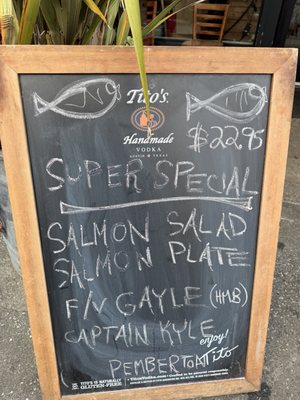 Tito's
Handmade
VODKA
AUSTIN TEXAS
$22.95
SUPER SPECIAL
SALMON SALAD
SALMON PLATE
F/V GAYLE (HMB)
CAPTAIN KYLE
enjoy!
PEMBERTON Tito
TITO'S IS NATURALLY
GLUTEN-FREE